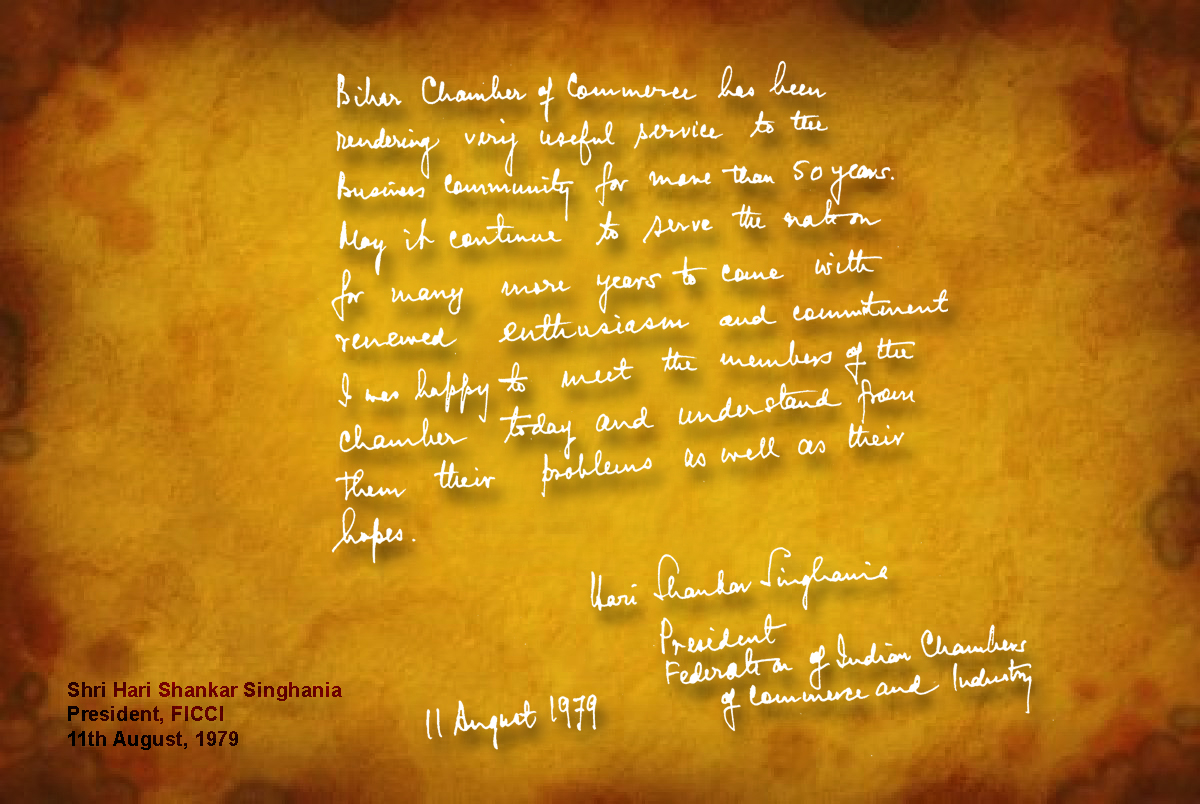 Bihar Chamber of Commerce has been
rendering very useful service to the
Business community for more than 50 years.
May it continue to serve the nation
for many more years to come with
renewed enthusiasm and commitment
I was happy to meet the members of the
chamber today and understand from
them their problems as well as their
hopes.
Hari Shankar Singhania
President
Federation of Indian Chambers
of Commerce and Industry
11 August 1979
Shri Hari Shankar Singhania
President, FICCI
11th August, 1979